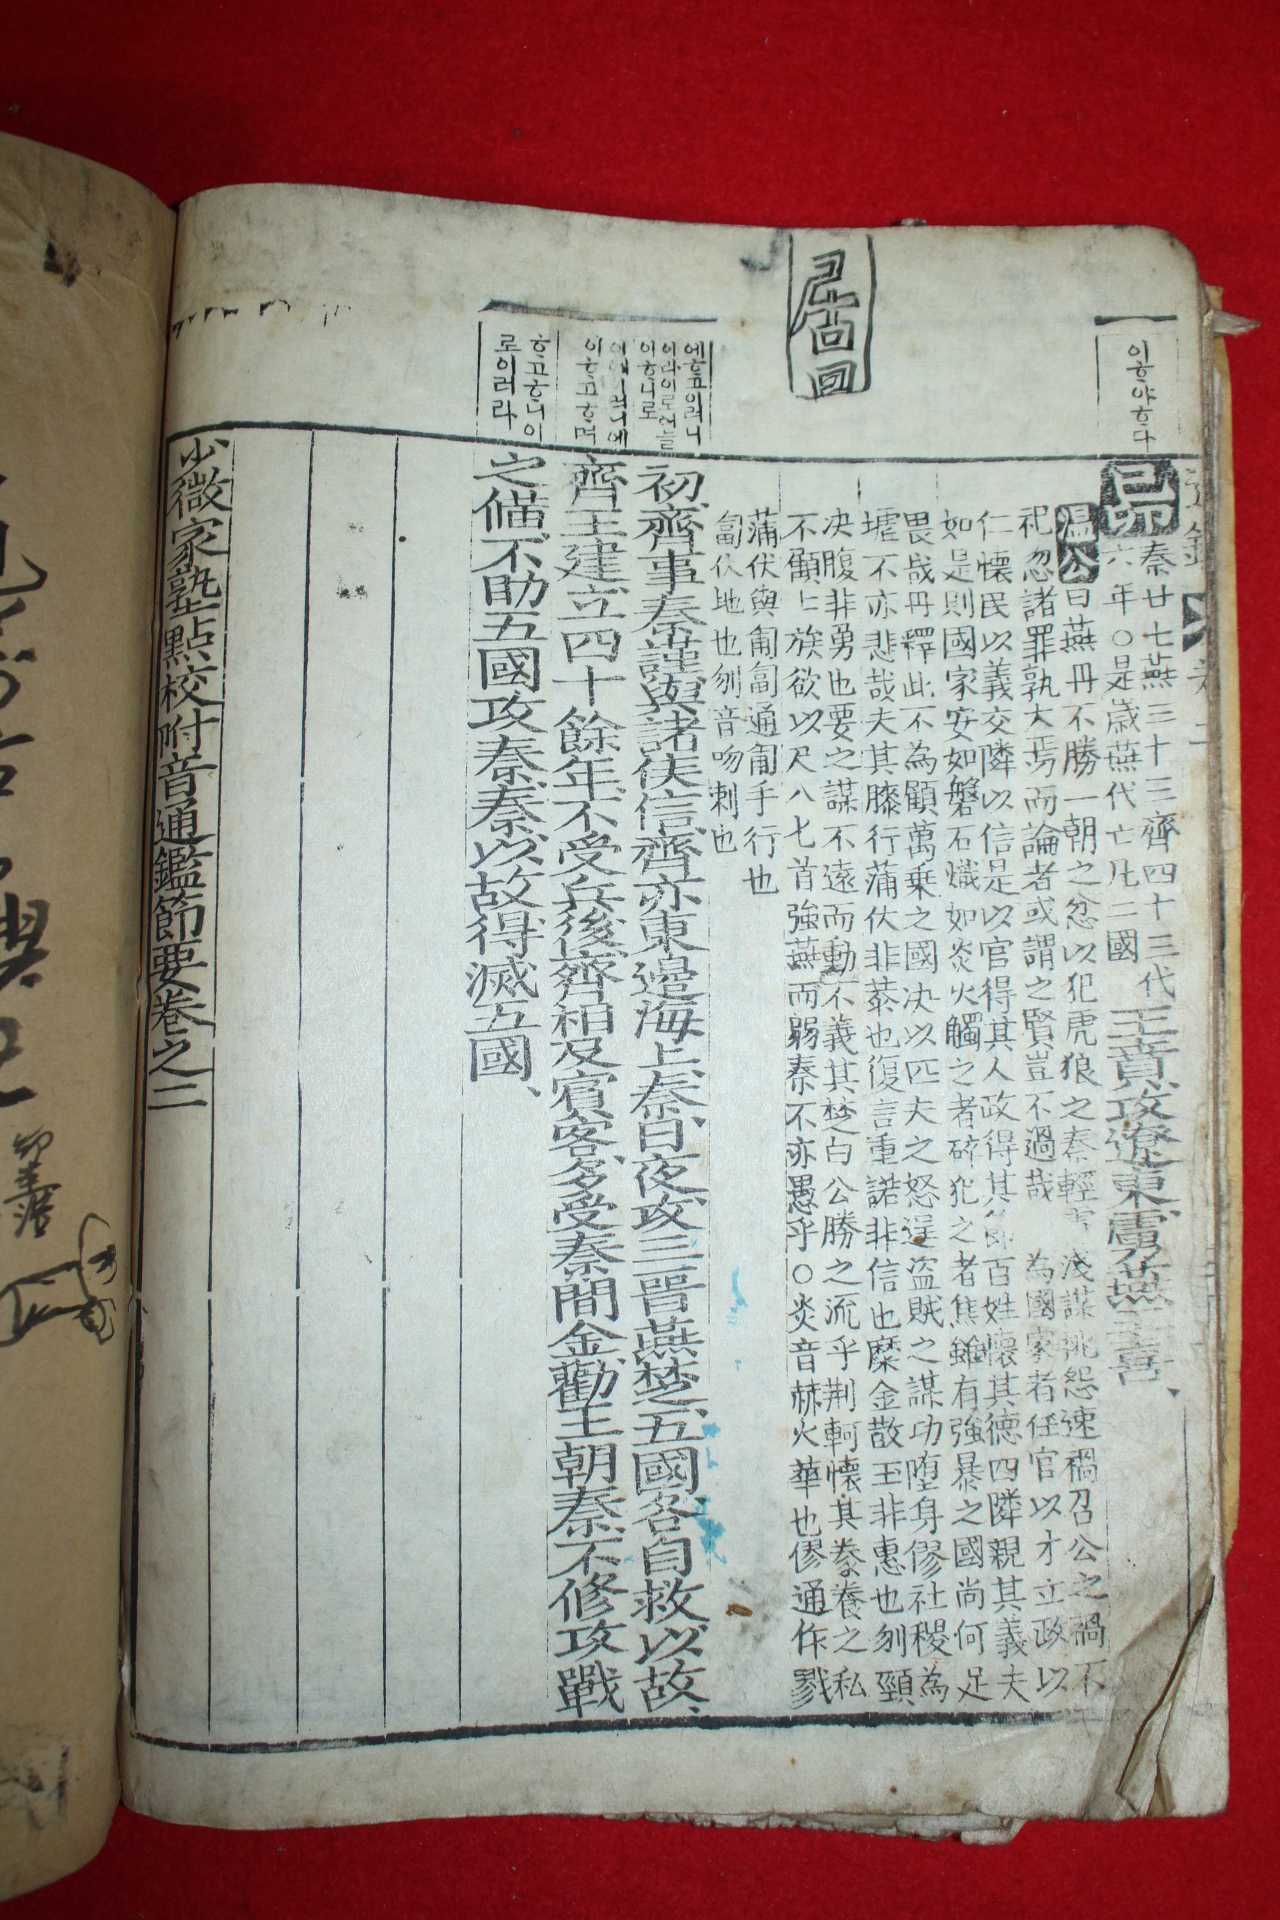 이ᄒᆞ야ᄒᆞ다
己卯
秦廿七燕三十三齊四十三代
六年○是歲燕代亡凡二國
王賁攻遼東虜燕王喜、
温公曰燕丹不勝一朝之忿以犯虎狼之秦輕 淺謀挑怨速禍召公之禍不
祀忽諸罪孰大焉而論者或謂之賢豈不過哉 為國家者任官以才立政以
仁懷民以義交隣以信是以官得其人政得其 百姓懷其德四隣親其義夫
如是則國家安如磐石熾如炎火觸之者碎犯之者焦雖有強暴之國尚何足
畏哉丹釋此不為顧萬乗之國决以匹夫之怒逞盗賊之謀功堕身僇社稷為
墟不亦悲哉夫其膝行蒲伏非恭也復言重諾非信也糜金散玉非惠也刎頸
决腹非勇也要之謀不遠而動不義其楚白公勝之流乎荆軻懷其豢養之私
不顧七族欲以尺八七首強燕而弱秦不亦愚乎○炎音赫火華也僇通作戮
蒲伏與匍匐通匍手行也
匐伏地也刎音吻刺也
에ᄒᆞ고이러니
이라이로ᄃᆡ늘
이ᄒᆞ니로
初齊事秦謹與諸侯信齊亦東邉海上秦日夜攻三晋燕楚五國各自救以故、
이ᄒᆞ고ᄒᆞ며
齊王建立四十餘年不受兵後齊相及賔客多受秦間金勸王朝秦不修攻戰
ᄒᆞ고ᄒᆞ니이
로이러라
之備不助五國攻秦秦以故得滅五國、
少微家塾點校附音通鑑節要卷之二